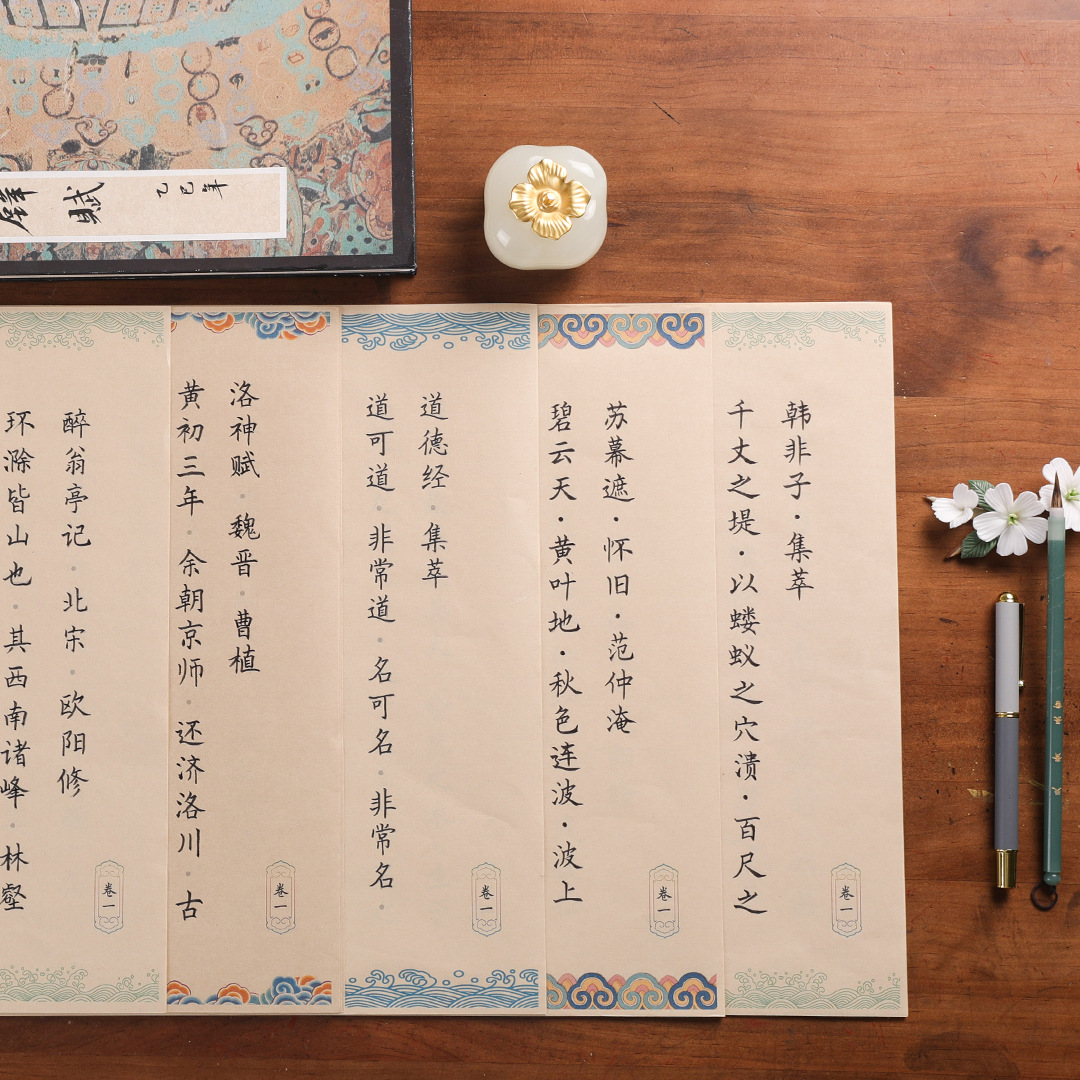 赋
乙巳年
韩非子·集萃
千丈之堤·以蝼蚁之穴溃·百尺之
卷一
苏幕遮·怀旧·范仲淹
碧云天·黄叶地·秋色连波·波上
卷一
道德经·集萃
道可道·非常道·名可名·非常名·
卷一
洛神赋·魏晋·曹植
黄初三年·余朝京师·还济洛川·古
卷一
醉翁亭记·北宋·欧阳修
环滁皆山也·其西南诸峰·林壑
卷一